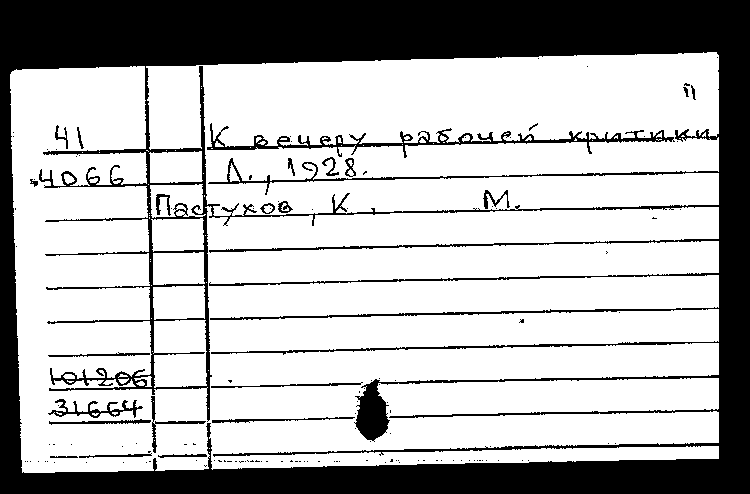 П
41 К вечеру рабочей критики
4066 Л., 1928.
Пастухов, К. М.
101206
31664